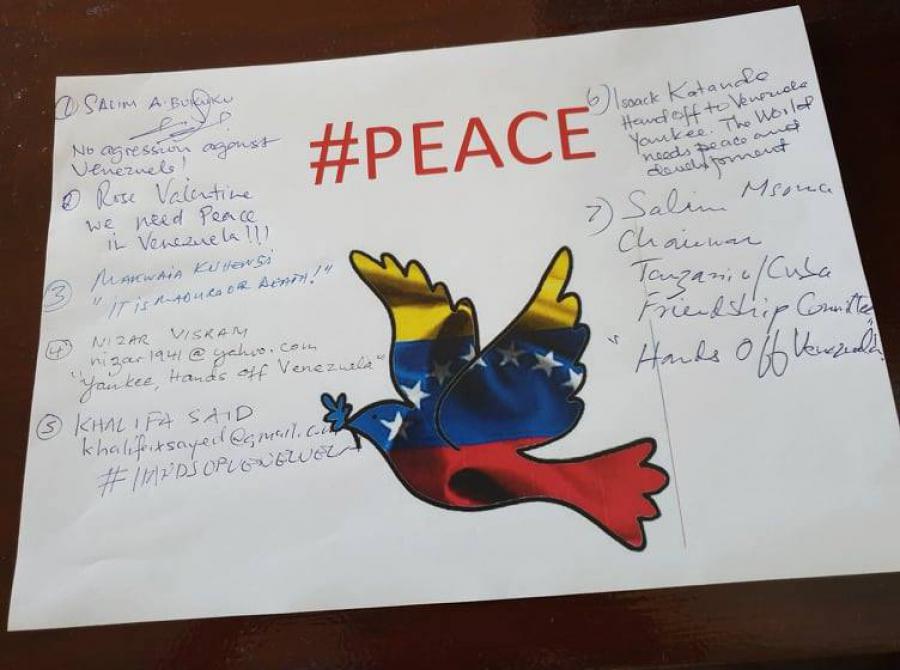 #PEACE
1) SALIM A. BURUKU
No agression against
Venezuela!
2) Rose Valentine
we need Peace
in Venezuela!!!
3) MAKWAIA KUHENGA
"IT IS MADURO OR DEATH!"
4) NIZAR VISRAM
nizar1941@yahoo.com
"Yankee, Hands off Venezuela"
5) KHALIFA SAID
#HANDSOFVENEZUELA
6) Isaack Katanda
Hand off to Venezuela
Yankee. The World
needs peace and
development
7) Salim Msoma
Chairman
Tanzania/Cuba
Friendship Committee
"Hands Off Venezuela"